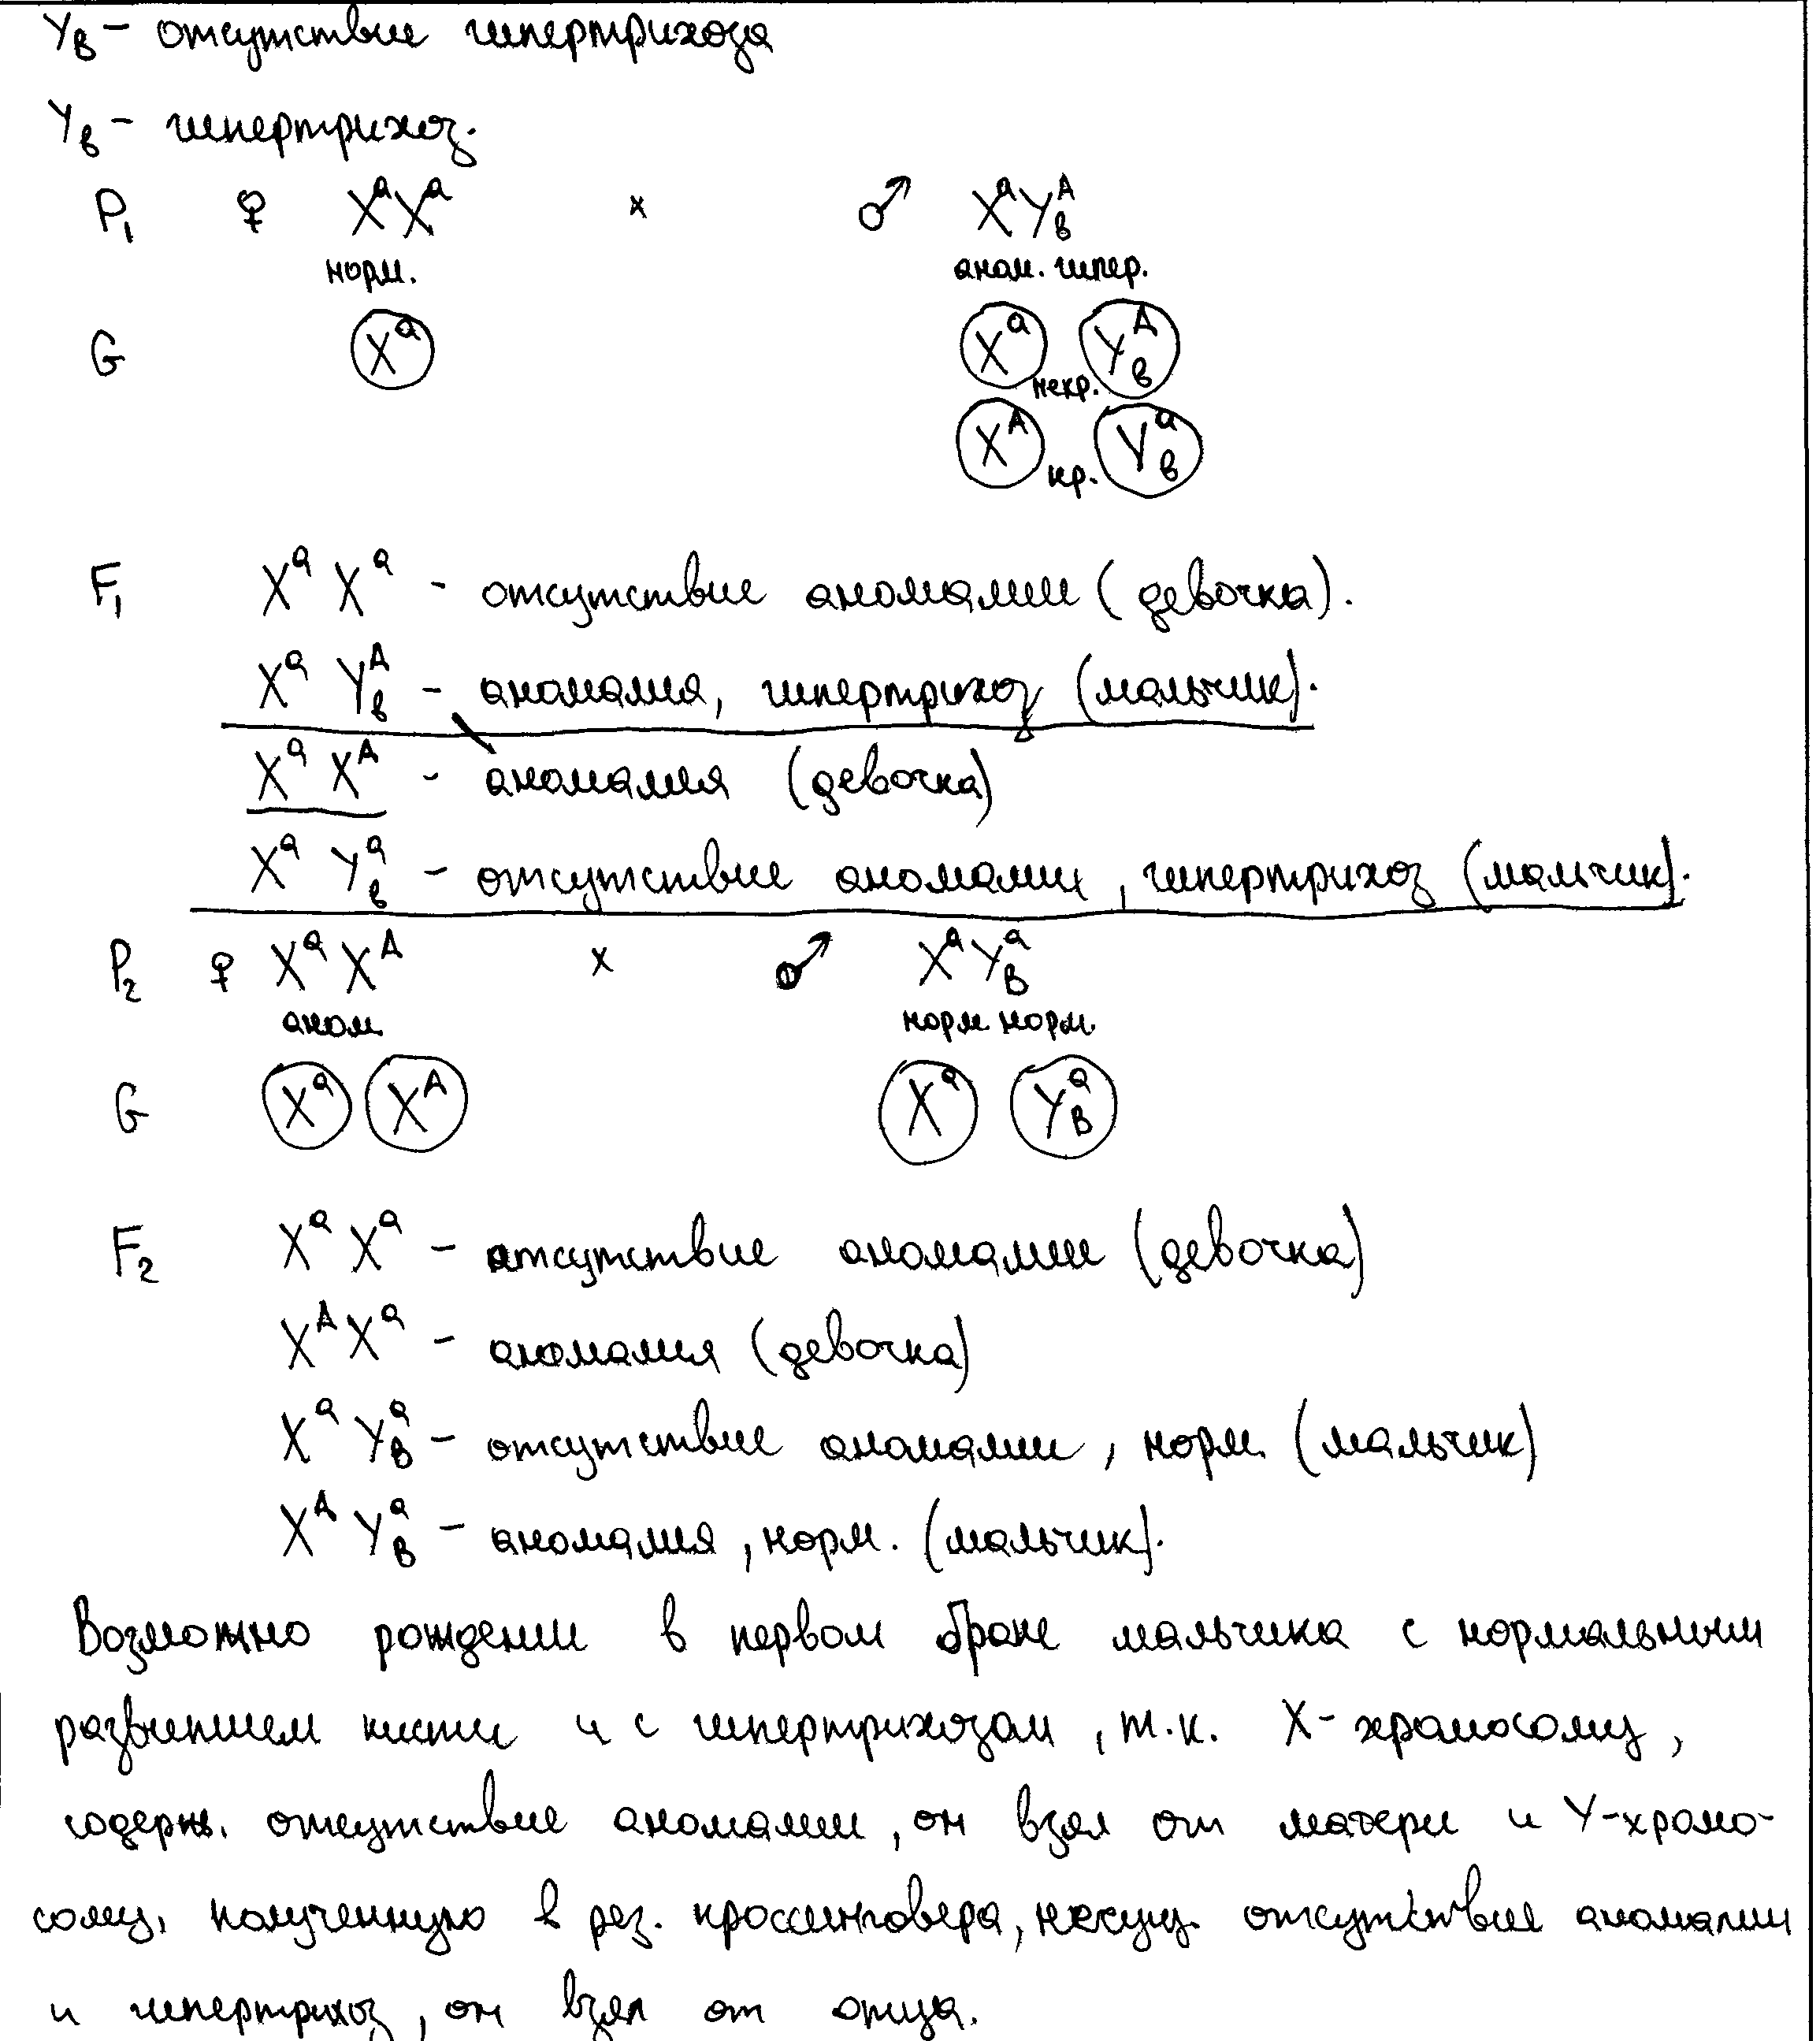 Yв - отсутствие гипертрихоза
Yв - гипертрихоз.
P₁ ♀ XᵃXᵃ x ♂ XᵃYвᴬ
норм. аном. гипер.
G Xᵃ Xᵃ некр. Yвᴬ
Xᴬ кр. Yвᵃ
F₁ Xᵃ Xᵃ - отсутствие аномалии (девочка).
Xᵃ Yвᴬ - аномалия, гипертрихоз (мальчик).
Xᵃ Xᴬ - аномалия (девочка)
Xᵃ Yвᵃ - отсутствие аномалии, гипертрихоз (мальчик).
P₂ ♀ Xᵃ Xᴬ x ♂ XᵃYBᵃ
аном. норм. норм.
G Xᵃ Xᴬ Xᵃ YBᵃ
F₂ Xᵃ Xᵃ - отсутствие аномалии (девочка)
XᴬXᵃ - аномалия (девочка)
Xᵃ YBᵃ - отсутствие аномалии, норм. (мальчик)
Xᴬ YBᵃ - аномалия, норм. (мальчик).
Возможно рождении в первом браке мальчика с нормальным
развитием кисти и с гипертрихозам, т.к. X-хромосому,
содерж. отсутствие аномалии, он взял от матери и Y-хромо-
сому, полученную в рез. кроссинговера, несущ. отсутствие аномалии
и гипертрихоз, он взял от отца.